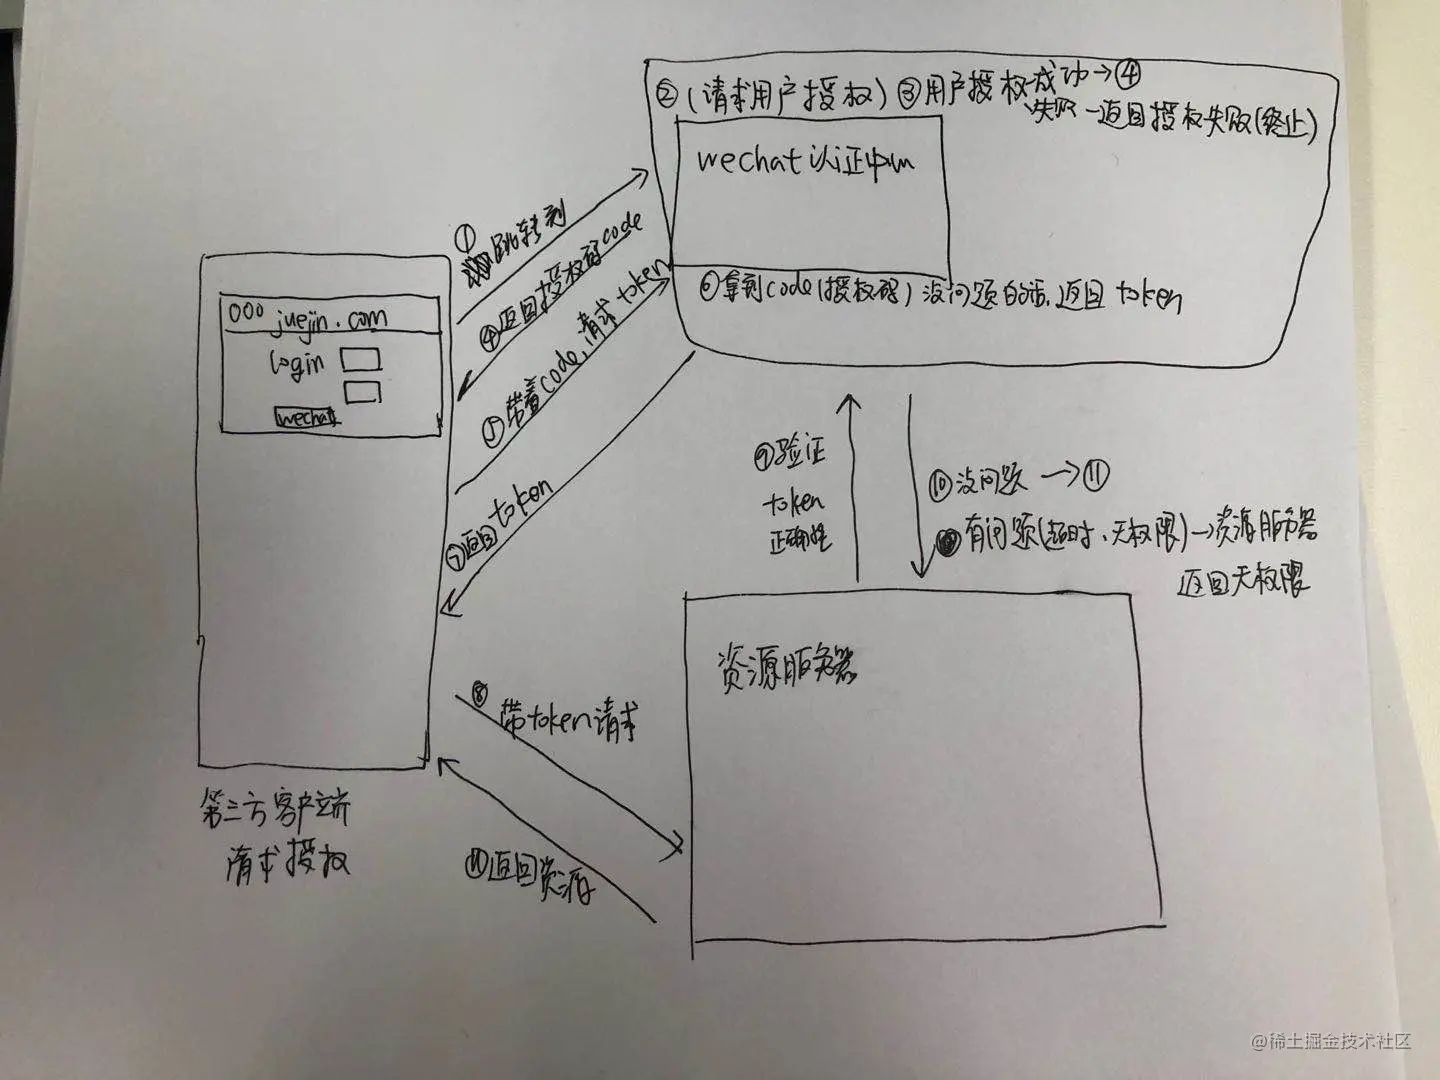 ②(请求用户授权) ③用户授权成功→④
失败-返回授权失败(终止)
wechat 认证中心
①跳转到
④返回授权码code
⑤带着code,请求token
⑥拿到code(授权码)没问题的话,返回 token
⑦返回token
ooo juejin.com
login
wechat
第三方客户端
请求授权
⑨验证
token
正确性
⑩没问题→⑪
有问题(超时、无权限)→资源服务器
返回无权限
资源服务器
⑧带token请求
⑪返回资源
@稀土掘金技术社区